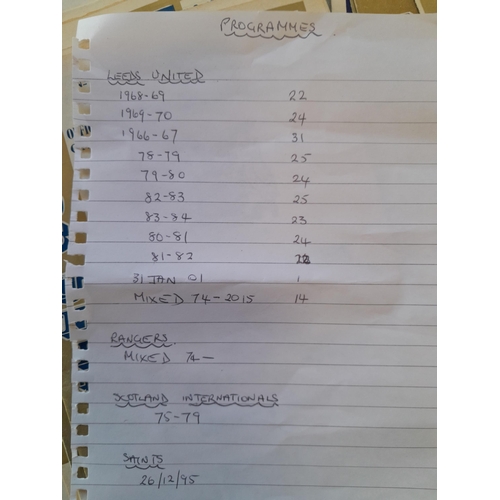 PROGRAMMES
LEEDS UNITED
1968-69 22
1969-70 24
1966-67 31
78-79 25
79-80 24
82-83 25
83-84 23
80-81 24
81-82
31 JAN 01 1
MIXED 74-2015 14
RANGERS
MIXED 74-
SCOTLAND INTERNATIONALS
75-79
SAINTS
26/12/95